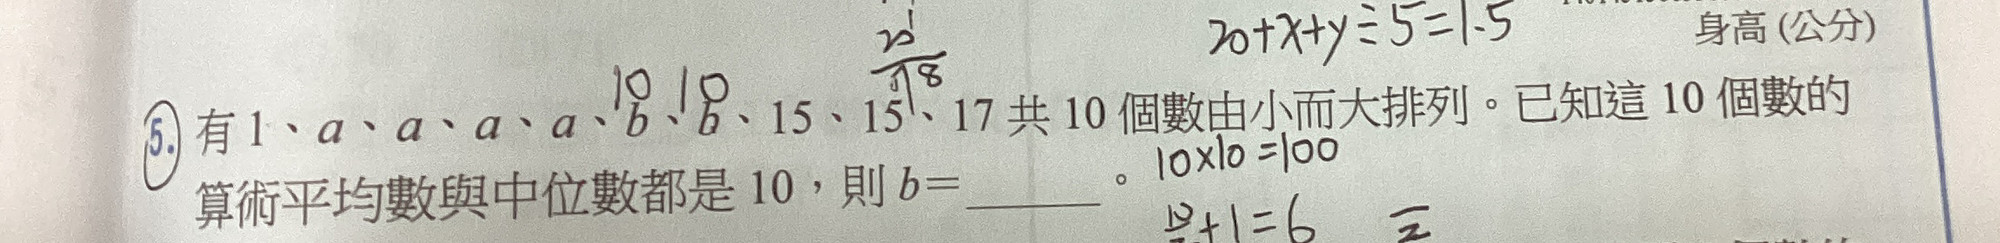 20+x+y÷5=1.5
身高(公分)
10 10
18
5. 有 1、a、a、a、a、b、b、15、15、17 共 10 個數由小而大排列。已知這 10 個數的
10×10=100
算術平均數與中位數都是 10,則 b=______。
+1=6